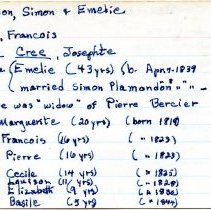 on, Simon & Emelie
, Francois
Cree, Josephte
(Emelie (43 yrs) (b. Apr. 7-1839
(married Simon Plamondon " " -
e was "widow" of Pierre Bercier
Marguerite (20 yrs) (born 1819)
Francois (16 yrs) ( " 1823)
Pierre (16 yrs) ( " 1823)
Cecile (14 yrs) ( " 1825)
(11 yrs) ( " 1828)
Elizabeth (9 yrs) ( " 1830)
Basile (5 yrs) ( "